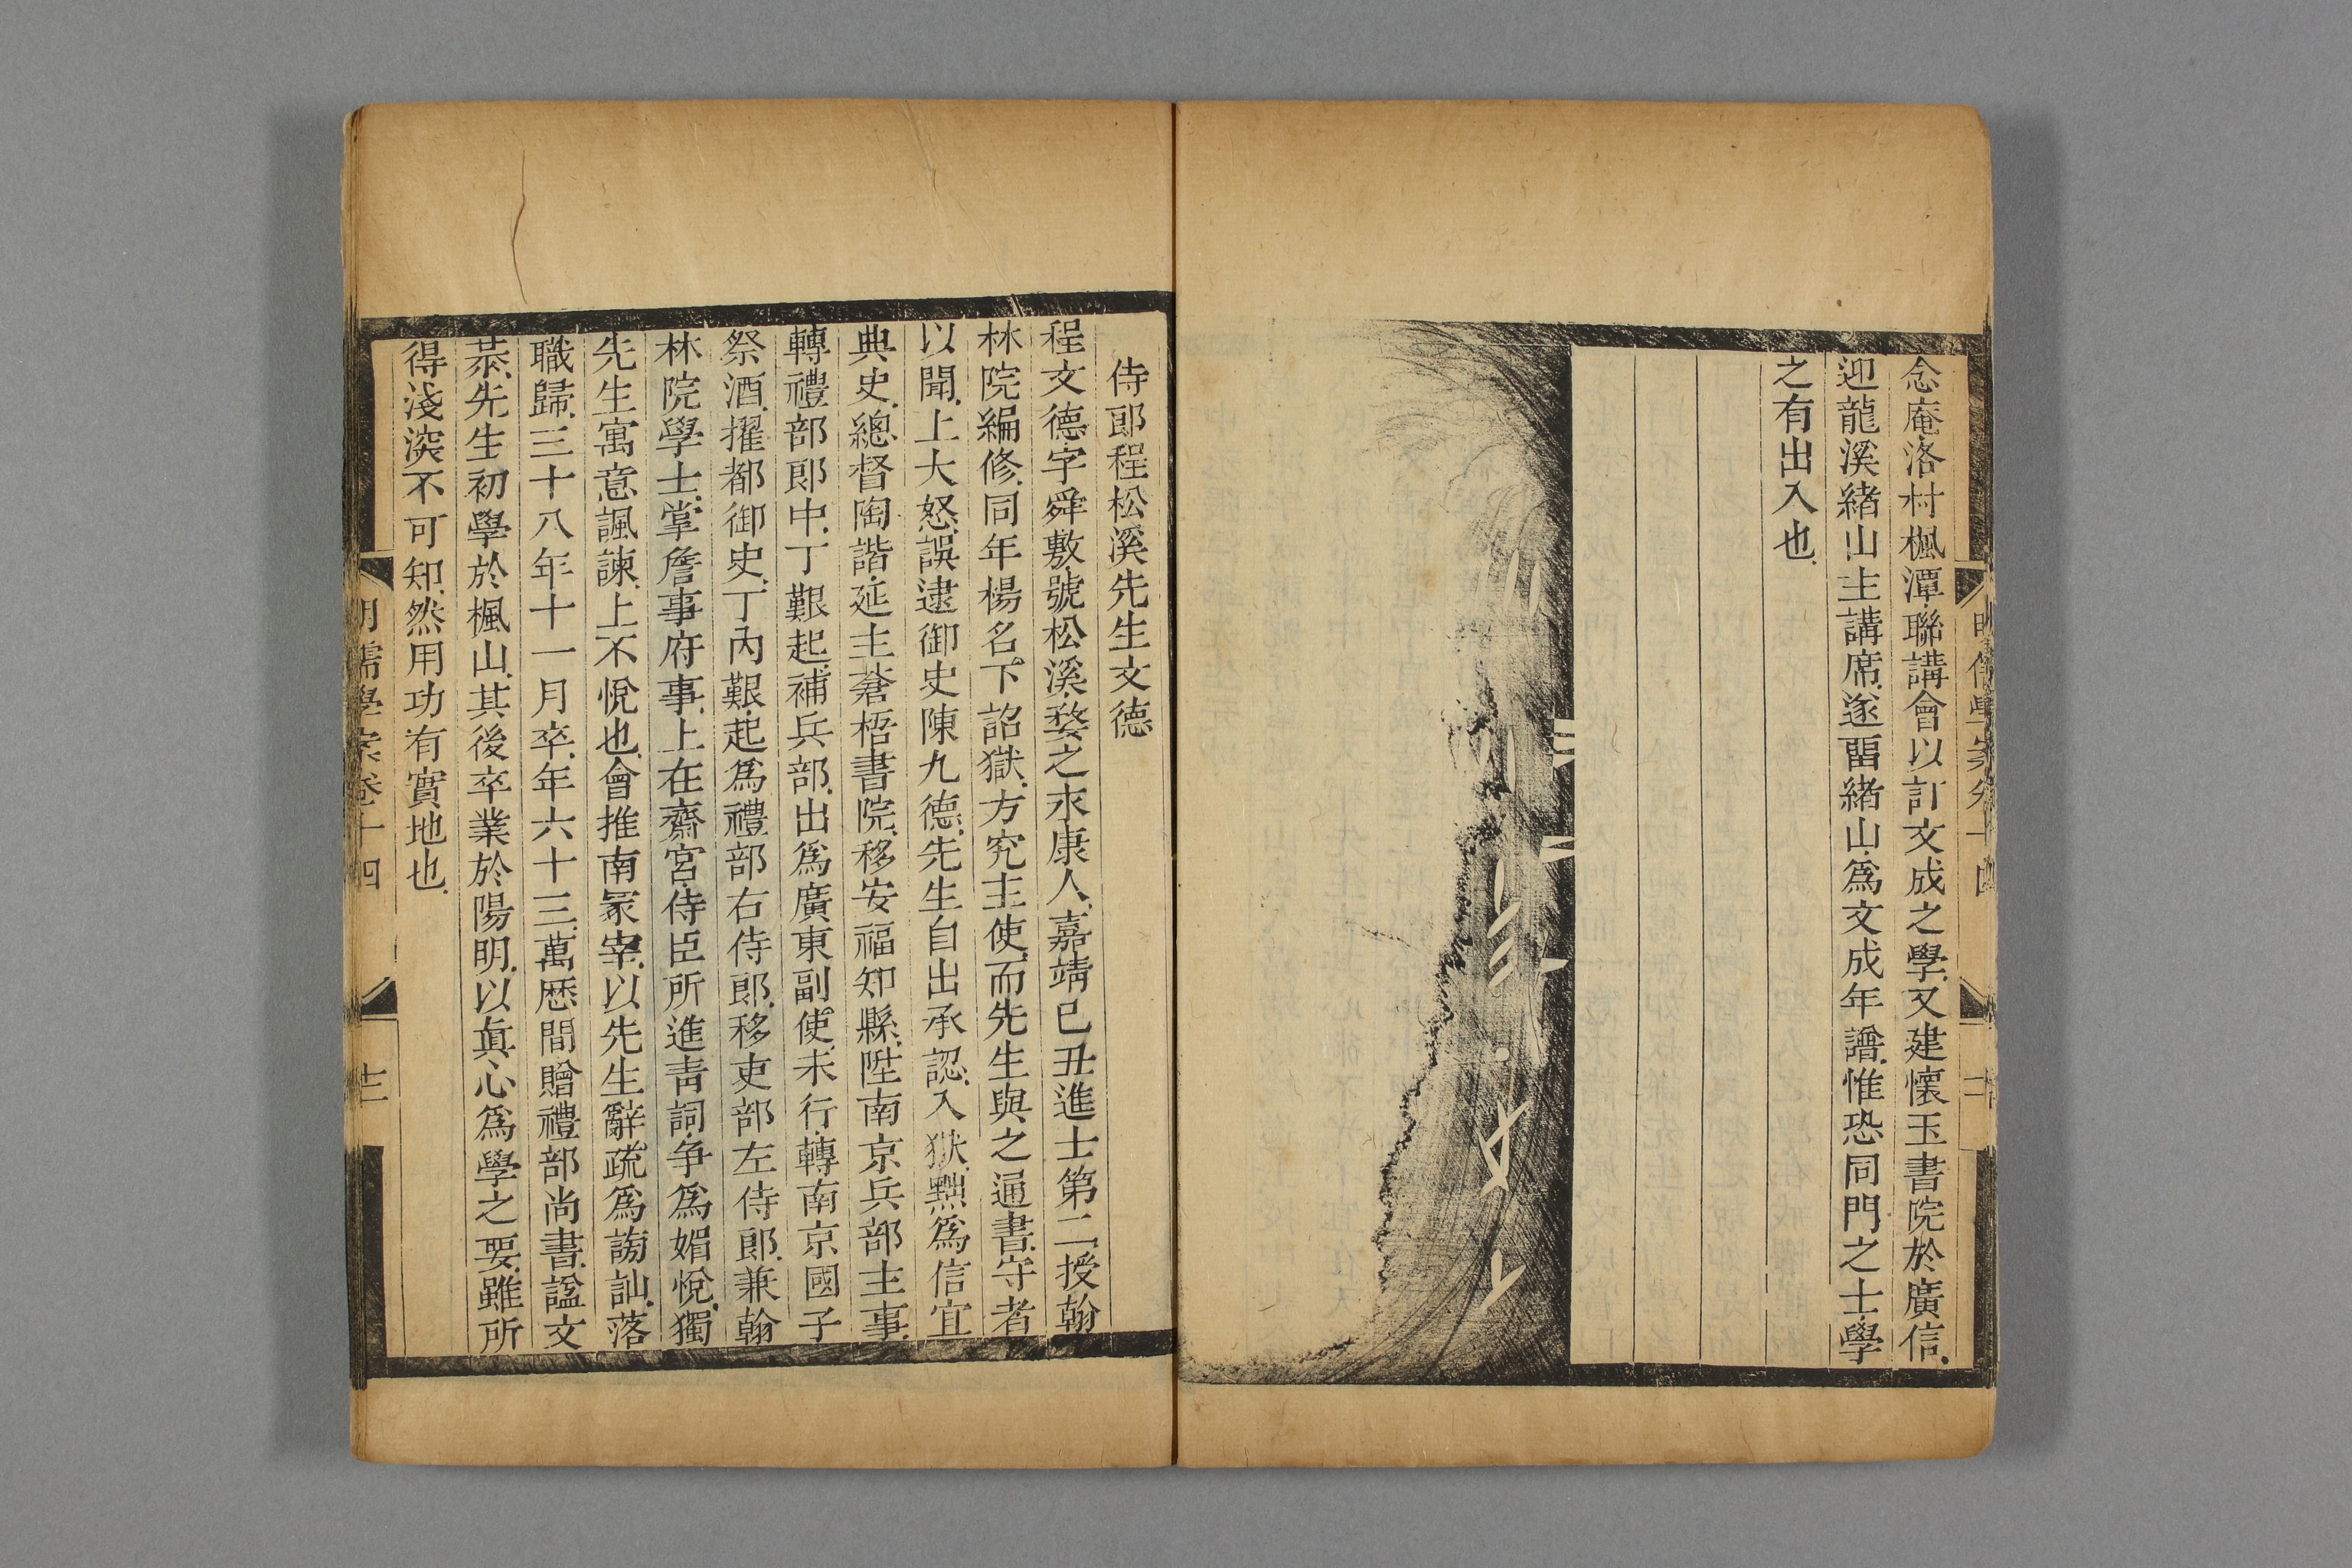 念庵洛村楓潭聯講會以訂文成之學又建懷玉書院於廣信
迎龍溪緒山主講席遂畱緒山為文成年譜惟恐同門之士學
之有出入也
侍郎程松溪先生文德
程文德字舜敷號松溪婺之永康人嘉靖己丑進士第二授翰
林院編修同年楊名下詔獄方究主使而先生與之通書守者
以聞上大怒誤逮御史陳九德先生自出承認入獄黜為信宜
典史總督陶諧延主蒼梧書院移安福知縣陞南京兵部主事
轉禮部郎中丁艱起補兵部出為廣東副使未行轉南京國子
祭酒擢都御史丁內艱起為禮部右侍郎移吏部左侍郎兼翰
林院學士掌詹事府事上在齋宮侍臣所進青詞爭為媚悅獨
先生寓意諷諫上不悅也會推南冢宰以先生辭疏為謗訕落
職歸三十八年十一月卒年六十三萬歷間贈禮部尚書諡文
恭先生初學於楓山其後卒業於陽明以眞心為學之要雖所
得淺深不可知然用功有實地也
明儒學案卷十四